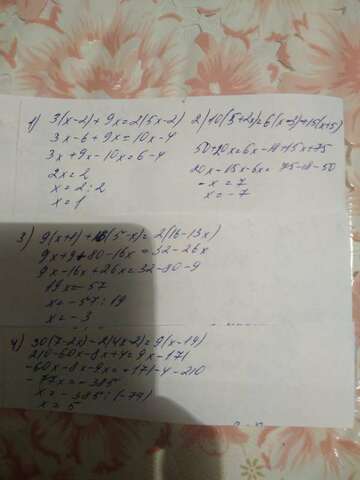 1) 3(x-2)+9x=2(5x-2)
3x-6+9x=10x-4
3x+9x-10x=6-4
2x=2
x=2:2
x=1
2) 10(5+2x)=6(x-3)+15(x+5)
50+20x=6x-18+15x+75
20x-15x-6x=75-18-50
-x=7
x=-7
3) 9(x+1)+16(5-x)=2(16-13x)
9x+9+80-16x=32-26x
9x-16x+26x=32-80-9
19x=-57
x=-57:19
x=-3
4) 30(7-2x)-2(4x-2)=9(x-19)
210-60x-8x+4=9x-171
-60x-8x-9x=-171-4-210
-77x=-385
x=-385:(-77)
x=5